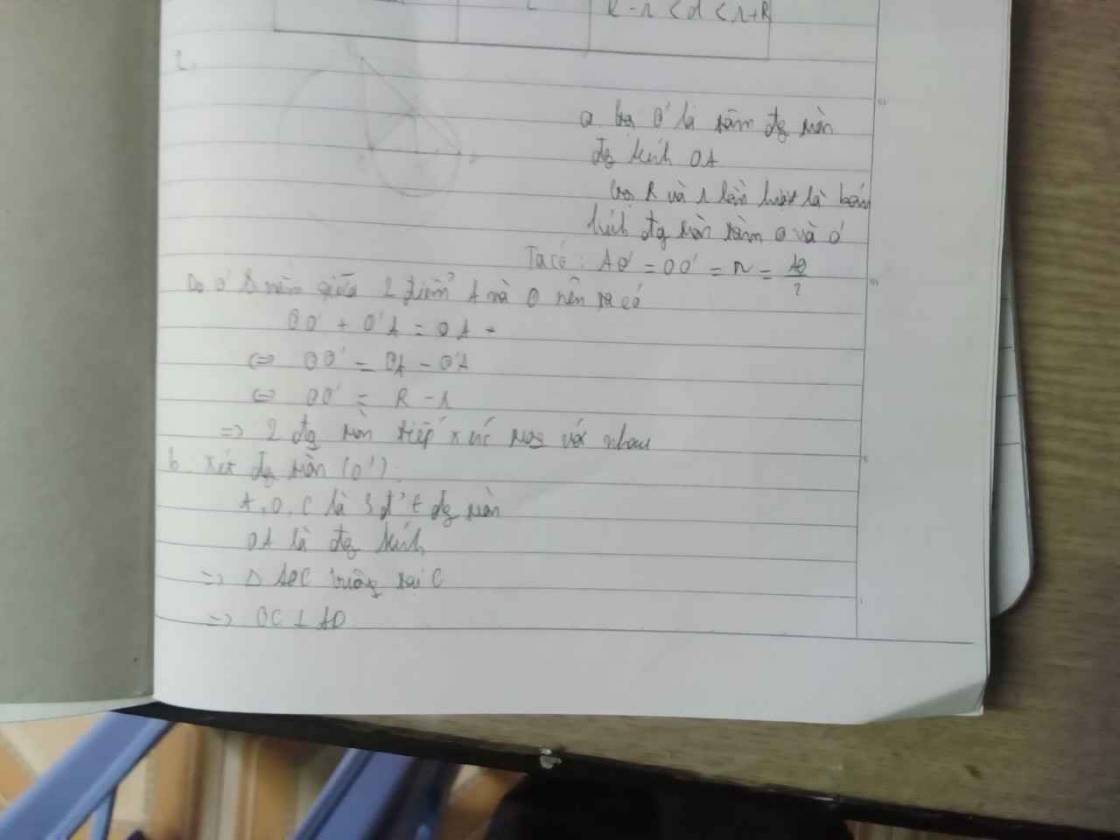 R - r < d < r + R
2.
a Gọi O' là tâm đg tròn
đg kính OA
Gọi R và r lần lượt là bán
kính đg tròn tâm O và O'
Ta có : AO' = OO' = r = AO/2
Do O' nằm giữa 2 điểm A và O nên ta có
OO' + O'A = OA
⇔ OO' = OA - O'A
⇔ OO' = R - r
=> 2 đg tròn tiếp xúc với nhau
b. Xét đg tròn (O') :
A, O, C là 3 đ' t đg tròn
OA là đg kính
=> Δ AOC vuông tại C
=> OC ⊥ AD